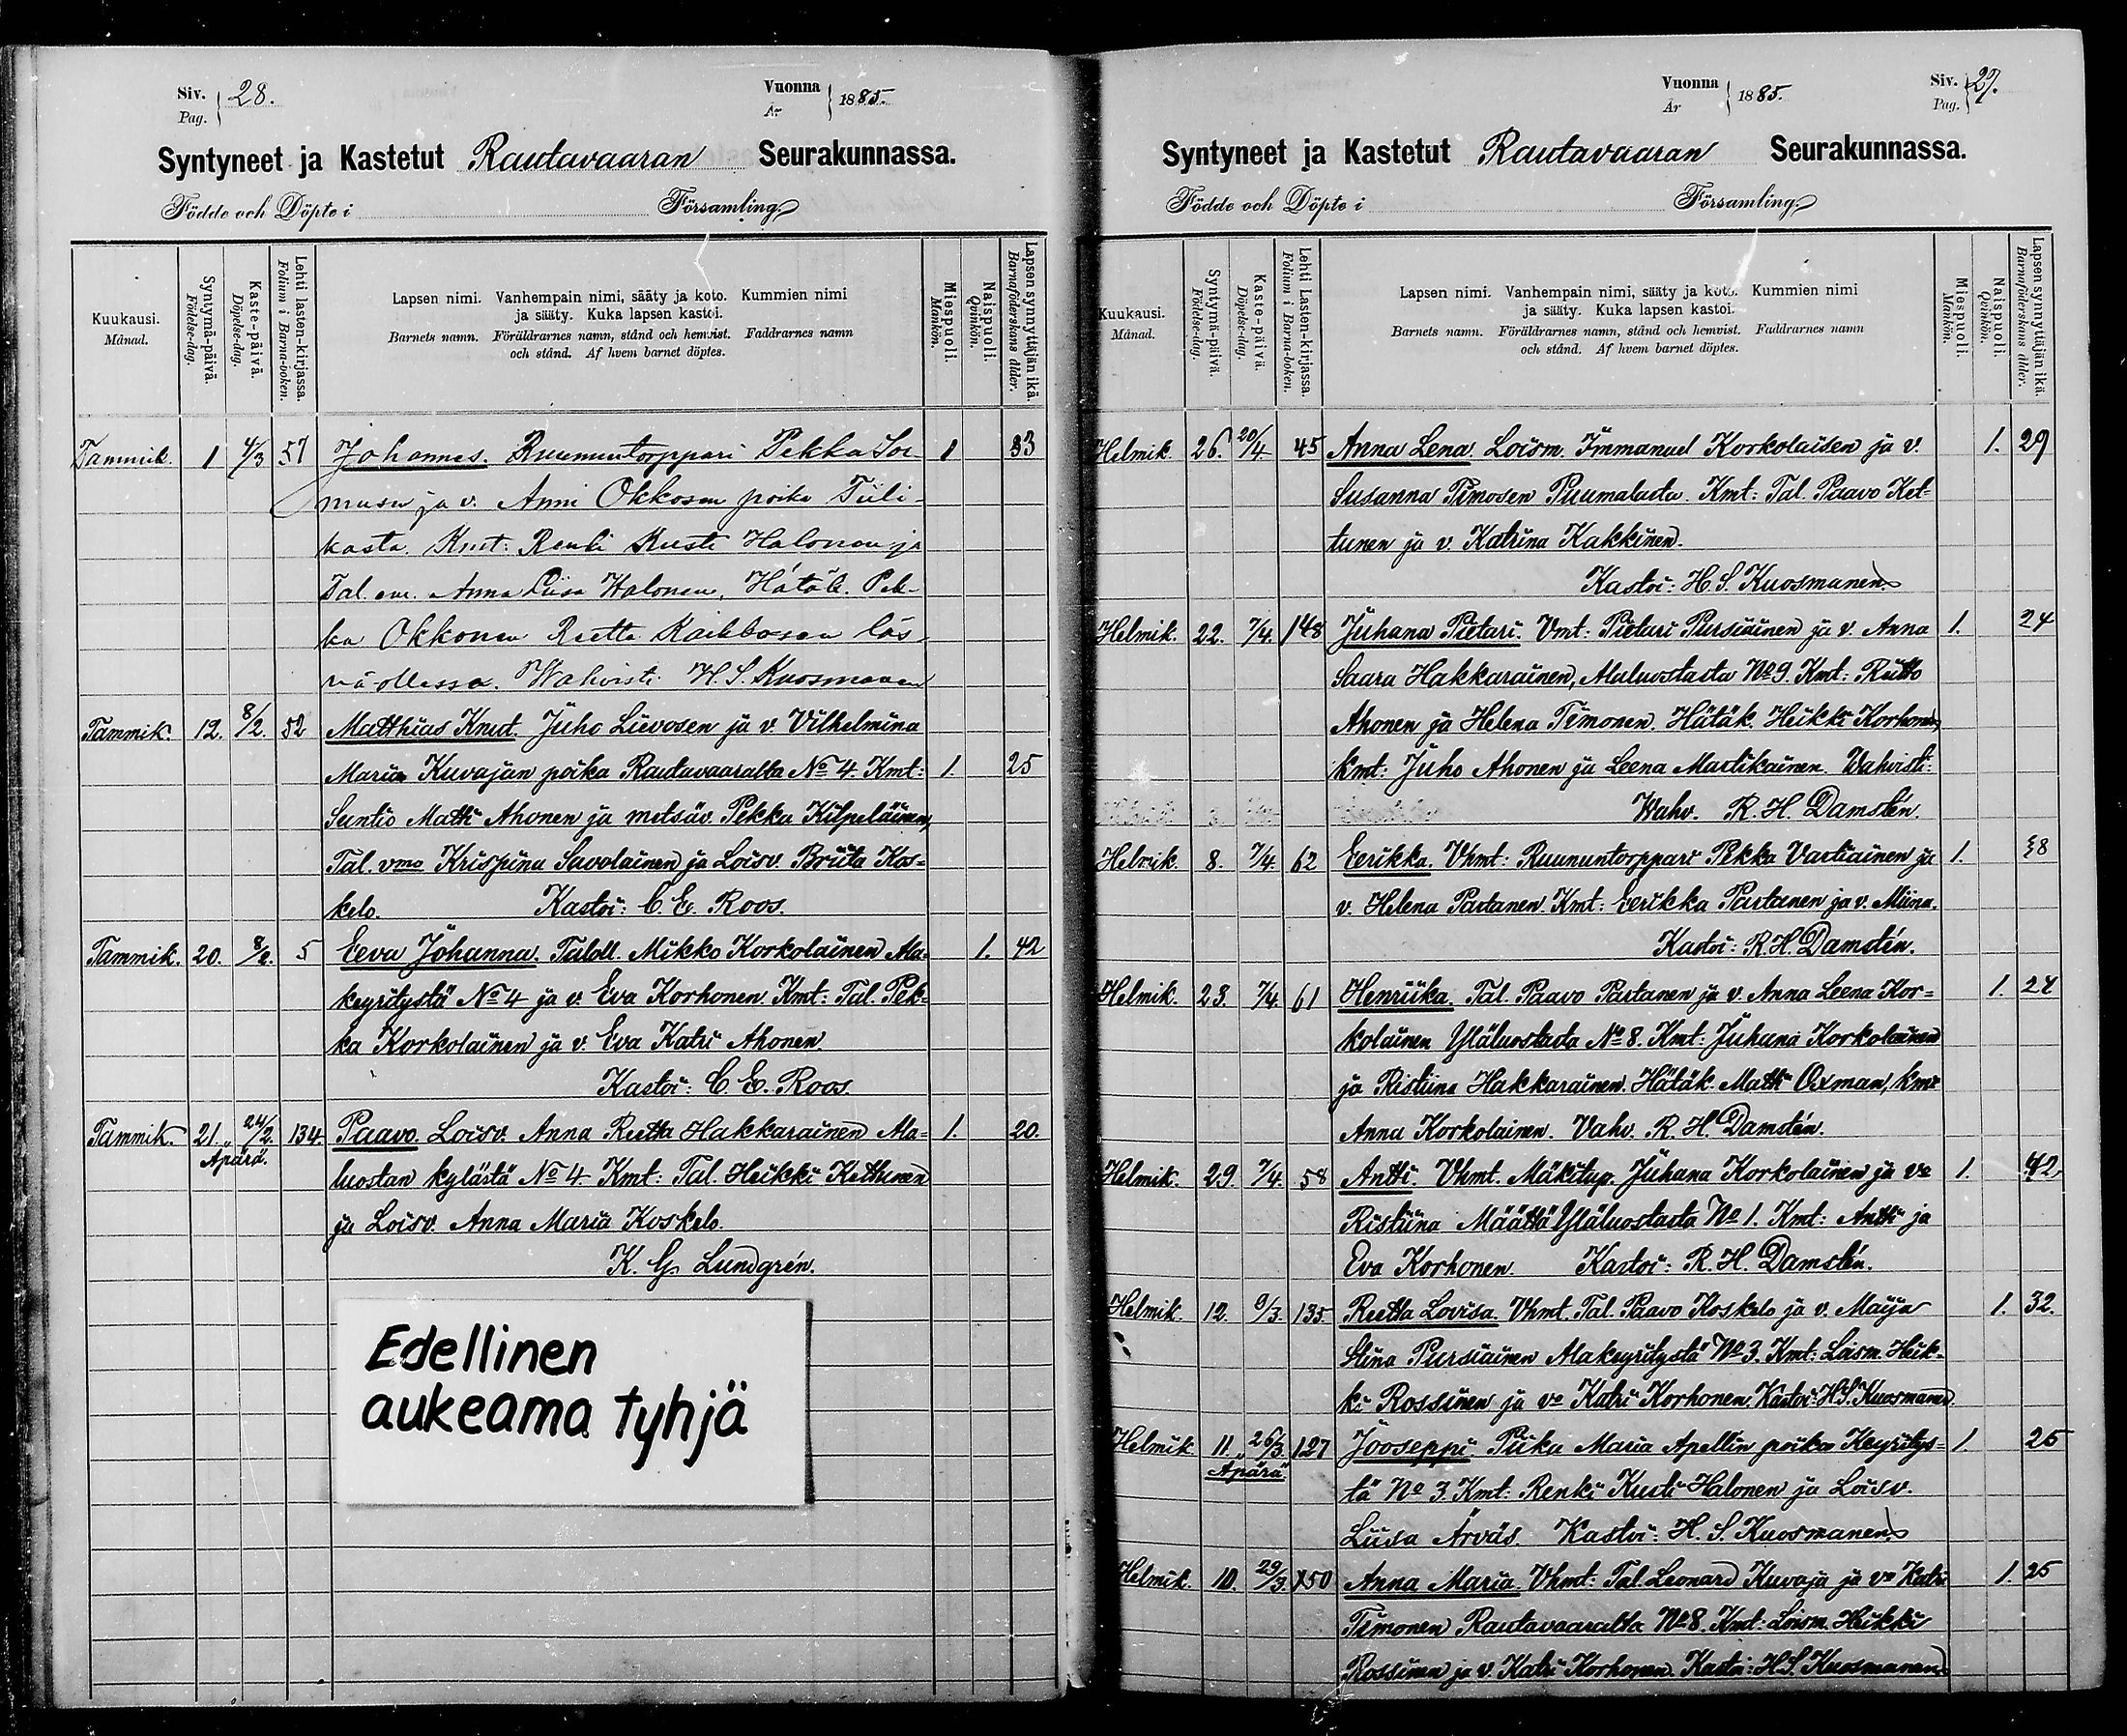 Siv. Pag. 28.
Vuonna År 1885.
Syntyneet ja Kastetut Rautavaaran Seurakunnassa.
Födde och Döpte i Församling.
Kuukausi. Månad.
Syntymä-päivä. Födelse-dag.
Kaste-päivä. Döpelse-dag.
Lehti lasten-kirjassa. Folium i Barna-boken.
Lapsen nimi. Vanhempain nimi, sääty ja koto. Kummien nimi
ja sääty. Kuka lapsen kastoi.
Barnets namn. Föräldrarnes namn, stånd och hemvist. Faddrarnes namn
och stånd. Af hvem barnet döptes.
Miespuoli. Mankön.
Naispuoli. Qvinkön.
Lapsen synnyttäjän ikä. Barnaföderskans ålder.
Tammik. 1 4/3 57 Johannes. Ruununtorppari Pekka 1 33
ja v. Anni Okkosen poika Tiili-
kasta. Kmt: Renki Kusti Halonen ja
Tal. Anna Liisa Halonen, Hätäk. Pek-
ka Okkonen Reetta läs-
nä ollessa. Wahvisti H. S. Kuosmanen
Tammik. 12. 8/2. 52 Matthias Knut. Juho Lievosen ja v. Vilhelmina
Maria Kuvajan poika Rautavaaralta No 4. Kmt: 1. 25
Suntio Matti Ahonen ja metsäv. Pekka Kilpeläinen,
Tal. vmo Krispina Savolainen ja Loisv. Briita Kos-
kelo. Kastoi: C. E. Roos.
Tammik. 20. 8/2. 5 Eeva Johanna. Taloll. Mikko Korkolainen Ala- 1. 42
keyritystä No 4 ja v. Eva Korhonen. Kmt: Tal. Pek-
ka Korkolainen ja v. Eva Katri Ahonen.
Kastoi: C. E. Roos.
Tammik. 21. 24/2. 134 Paavo. Loisv. Anna Reetta Hakkarainen Ala- 1. 20.
Äpärä.
luostan kylästä No 4 Kmt: Tal. Heikki Kettunen
ja Loisv. Anna Maria Koskelo.
K. G. Lundgrén.
Edellinen
aukeama tyhjä
Vuonna År 1885.
Siv. Pag. 29.
Syntyneet ja Kastetut Rautavaaran Seurakunnassa.
Födde och Döpte i Församling.
Kuukausi. Månad.
Syntymä-päivä. Födelse-dag.
Kaste-päivä. Döpelse-dag.
Lehti Lasten-kirjassa. Folium i Barna-boken.
Lapsen nimi. Vanhempain nimi, sääty ja koto. Kummien nimi
ja sääty. Kuka lapsen kastoi.
Barnets namn. Föräldrarnes namn, stånd och hemvist. Faddrarnes namn
och stånd. Af hvem barnet döptes.
Miespuoli. Mankön.
Naispuoli. Qvinkön.
Lapsen synnyttäjän ikä. Barnaföderskans ålder.
Helmik. 26. 20/4. 45 Anna Lena. Loism. Immanuel Korkolaisen ja v. 1. 29
Susanna Timosen Puumalasta. Kmt: Tal. Paavo Ket-
tunen ja v. Katrina Kakkinen.
Kastoi: H. S. Kuosmanen.
Helmik. 22. 7/4. 148 Juhana Pietari. Vmt: Pietari Pursiainen ja v. Anna 1. 24
Saara Hakkarainen, Alaluostasta No 9. Kmt: Riitto
Ahonen ja Helena Timonen. Hätäk. Heikki Korhonen,
kmt: Juho Ahonen ja Leena Martikainen. Wahvisti:
Wahv. R. H. Damstén.
Helmik. 8. 7/4. 62 Eerikka. Vhmt: Ruununtorppari Pekka Vartiainen ja 1. 38
v. Helena Partanen. Kmt: Eerikka Partanen ja v. Miina.
Kastoi: R. H. Damstén.
Helmik. 23. 7/4. 61 Henriika. Tal. Paavo Partanen ja v. Anna Leena Kor- 1. 24
kolainen Yläluostasta No 8. Kmt: Juhana Korkolainen
ja Ristiina Hakkarainen. Hätäk. Matti Oxman, kmt
Anna Korkolainen. Vahv. R. H. Damstén.
Helmik. 29. 7/4. 58 Antti. Vhmt. Mäkitup. Juhana Korkolainen ja vo 1. 42
Ristiina Määttä Yläluostasta No 1. Kmt: Antti ja
Eva Korhonen. Kastoi: R. H. Damstén.
Helmik. 12. 9/3. 135 Reetta Lovisa. Vhmt. Tal. Paavo Koskelo ja v. Maija 1. 32.
Stina Pursiainen Alakeyritystä No 3. Kmt: Loism. Heik-
ki Rossinen ja vo Katri Korhonen. Kastoi: H. S. Kuosmanen.
Helmik. 11. 26/3. 127 Jooseppi. Piika Maria Apellin poika Keyritys- 1. 25
Äpärä.
tä No 3. Kmt: Renki Kusti Halonen ja Loisv.
Liisa Ärväs. Kastoi: H. S. Kuosmanen.
Helmik. 10. 29/3. 150 Anna Maria. Vhmt: Tal. Leonard Kuvaja ja vo Katri 1. 25
Timonen Rautavaaralta No 8. Kmt: Loism. Heikki
Rossinen ja v. Katri Korhonen. Kastoi: H. S. Kuosmanen.